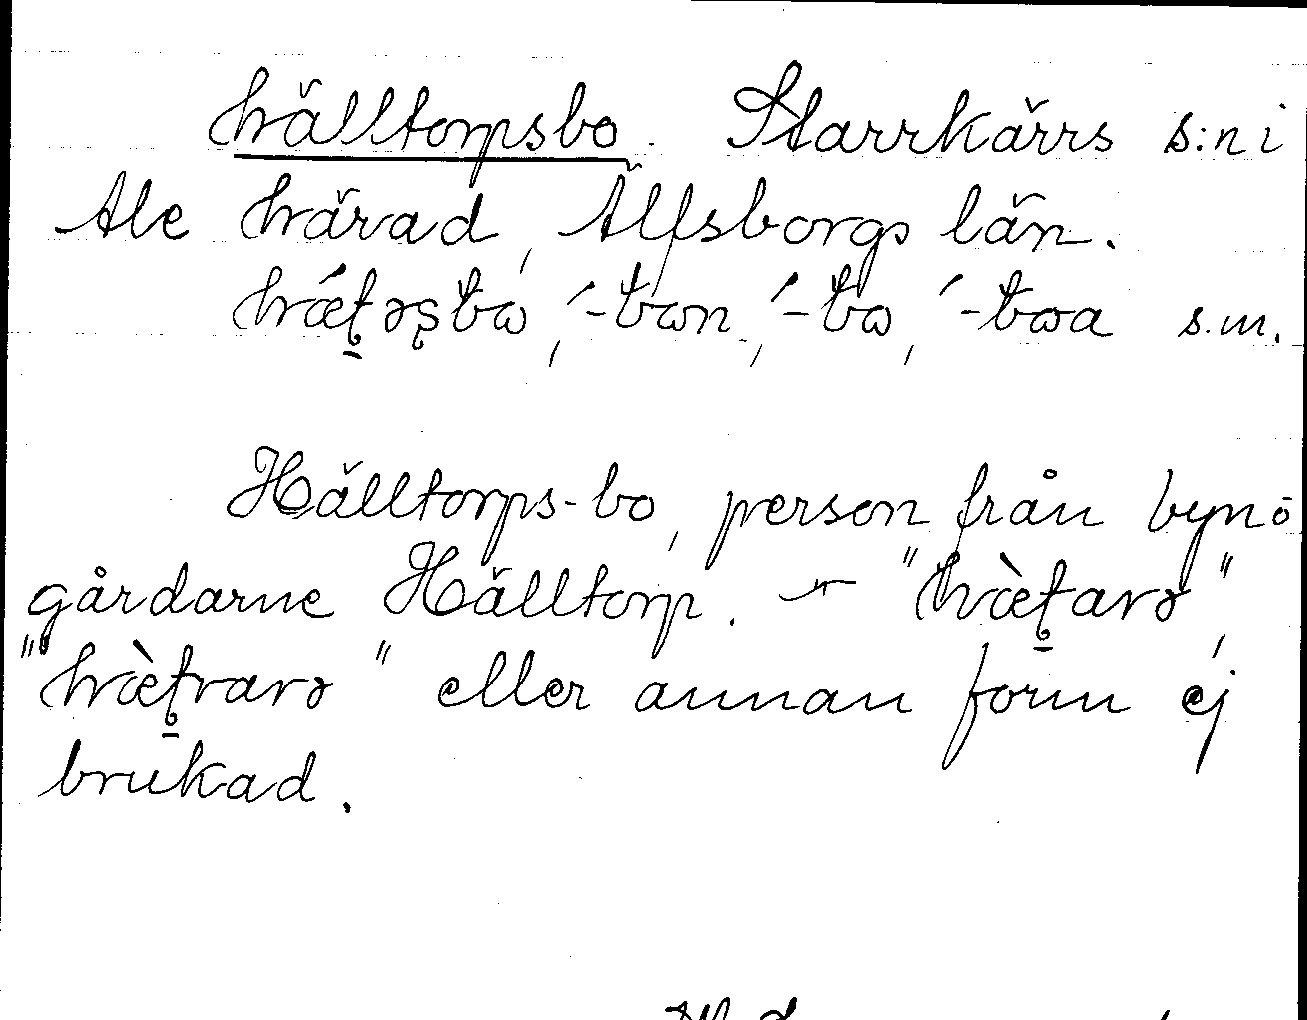 hälltorpsbo. Starrkärrs s:n i
Ale härad, Älfsborgs län.
hǽʈəʂbω, ´-bωn, ´-bω, ´-bωa s.m.
Hälltorps-bo, person från byn o
gårdarne Hälltorp. — "hæ̀ʈarə",
"hæ̀ʈvarə" eller annan form ej
brukad.